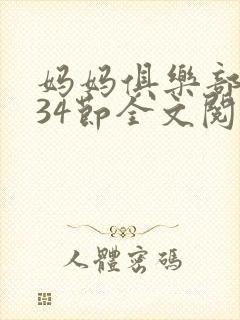 妈妈俱樂部
34節全文閱
人體密碼